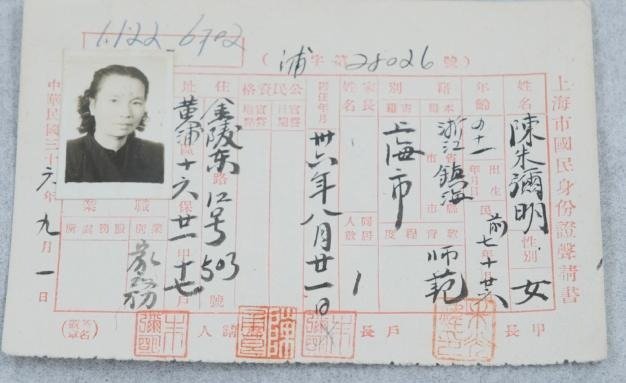 1.1.22_6702
(浦字第28026號)
上海市國民身份證聲請書
姓名 陳朱彌明 性別 女
年齡 五十一 出生年月日 民前七 十 廿六
籍貫 本籍 浙江省鎮海縣市 教育程度 师范
寄籍 上海市
家長姓名 同居人數 1
卅六年八月廿一日
公民資格 宣誓日期 宣誓地點
住址 金陵东路12号503號
黄浦 十六保廿一 十七
職業 業別 家務 服務處所
中華民國三十六年九月一日
甲長
戶長
聲請人
(簽名蓋章)